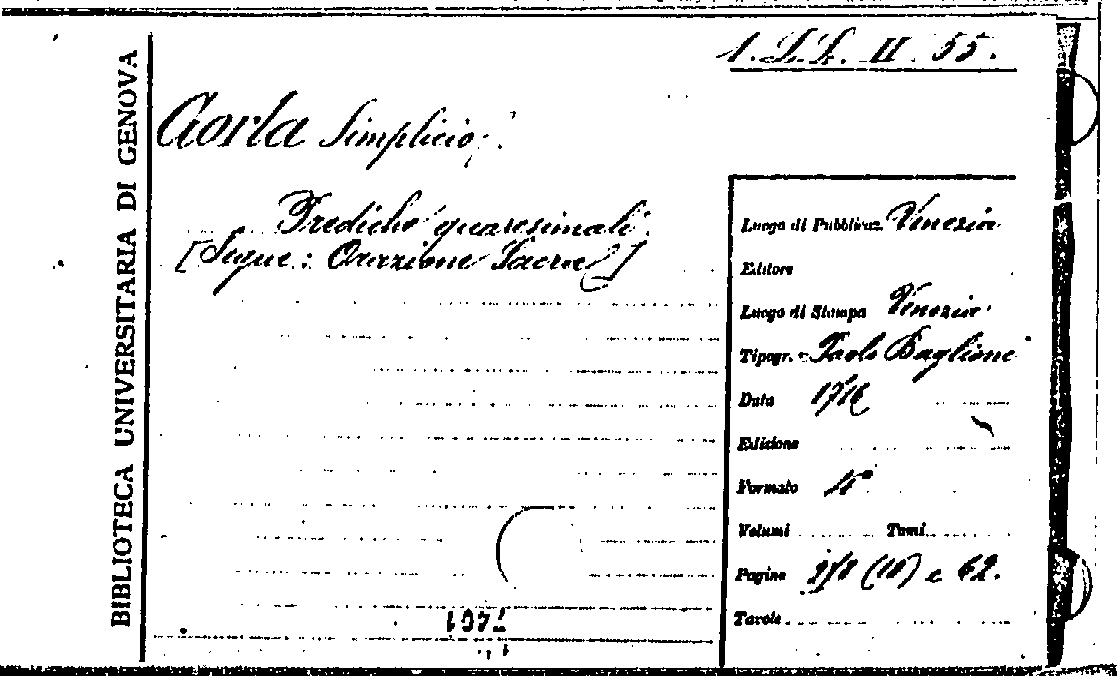 1. LL. II. 55.
BIBLIOTECA UNIVERSITARIA DI GENOVA
Gorla Simplicio.
Prediche quaresimali.
[Segue: Orazione Sacra]
Luogo di Pubblicaz. Venezia
Editore
Luogo di Stampa Venezia
Tipogr. Paolo Baglioni
Data 1716
Edizione
Formato 4°
Volumi Tomi
Pagine (16) e 62.
Tavole